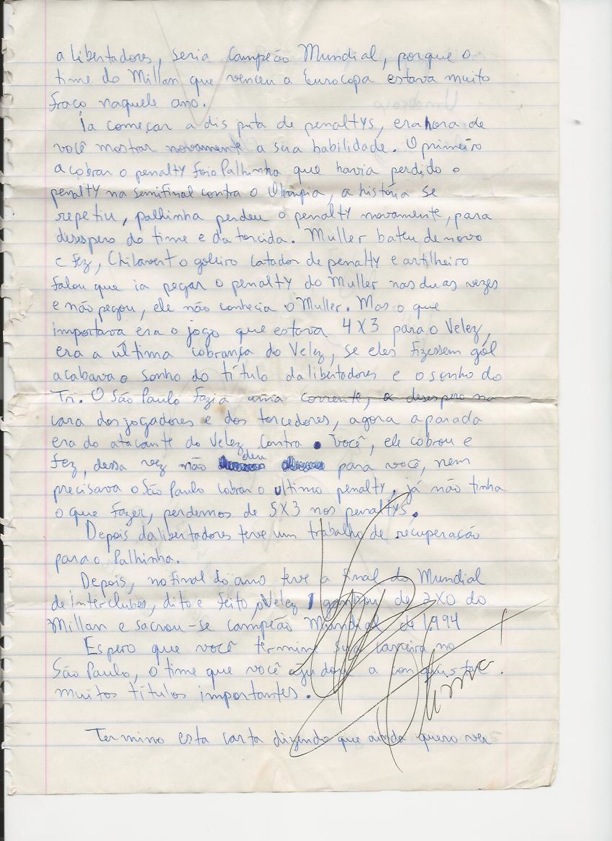 a libertadores, seria Campeão Mundial, porque o
time do Millan que venceu a Eurocopa estava muito
fraco naquele ano.
Ía começar a disputa de penaltys, era hora de
você mostar novamente a sua habilidade. O primeiro
a cobrar o penalty foi o Palhinha que havia perdido o
penalty na semifinal contra o Olímpia, a história se
repetiu, palhinha perdeu o penalty novamente, para
desespero do time e da torcida. Müller bateu de novo
e fez, Chilavert o goleiro catador de penalty e artilheiro
falou que ia pegar o penalty do Muller nas duas vezes
e não pegou, ele não conhecia o Muller. Mas o que
importava era o jogo que estava 4X3 para o Velez,
era a última cobrança do Velez, se eles fizessem gól
acabava o sonho do título da libertadores e o sonho do
Tri. O São Paulo fazia uma corrente, o desespero na
cara dos jogadores e dos torcedores, agora a parada
era do atacante do Velez contra você, ele cobrou e
fez, dessa vez não deu para você, nem
precisava o São Paulo cobrar o ultimo penalty, já não tinha
o que fazer, perdemos de 5X3 nos penaltys.
Depois da libertadores teve um trabalho de recuperação
para o Palhinha.
Depois, no final do ano teve a final do Mundial
de Interclubes, dito e feito, o Velez ganhou de 2X0 do
Millan e sacrou-se campeão Mundial de 1994
Espero que você termine sua carreira no
São Paulo, o time que você ajudou a conquistar
muitos títulos importantes.
Termino esta carta dizendo que ainda quero ver